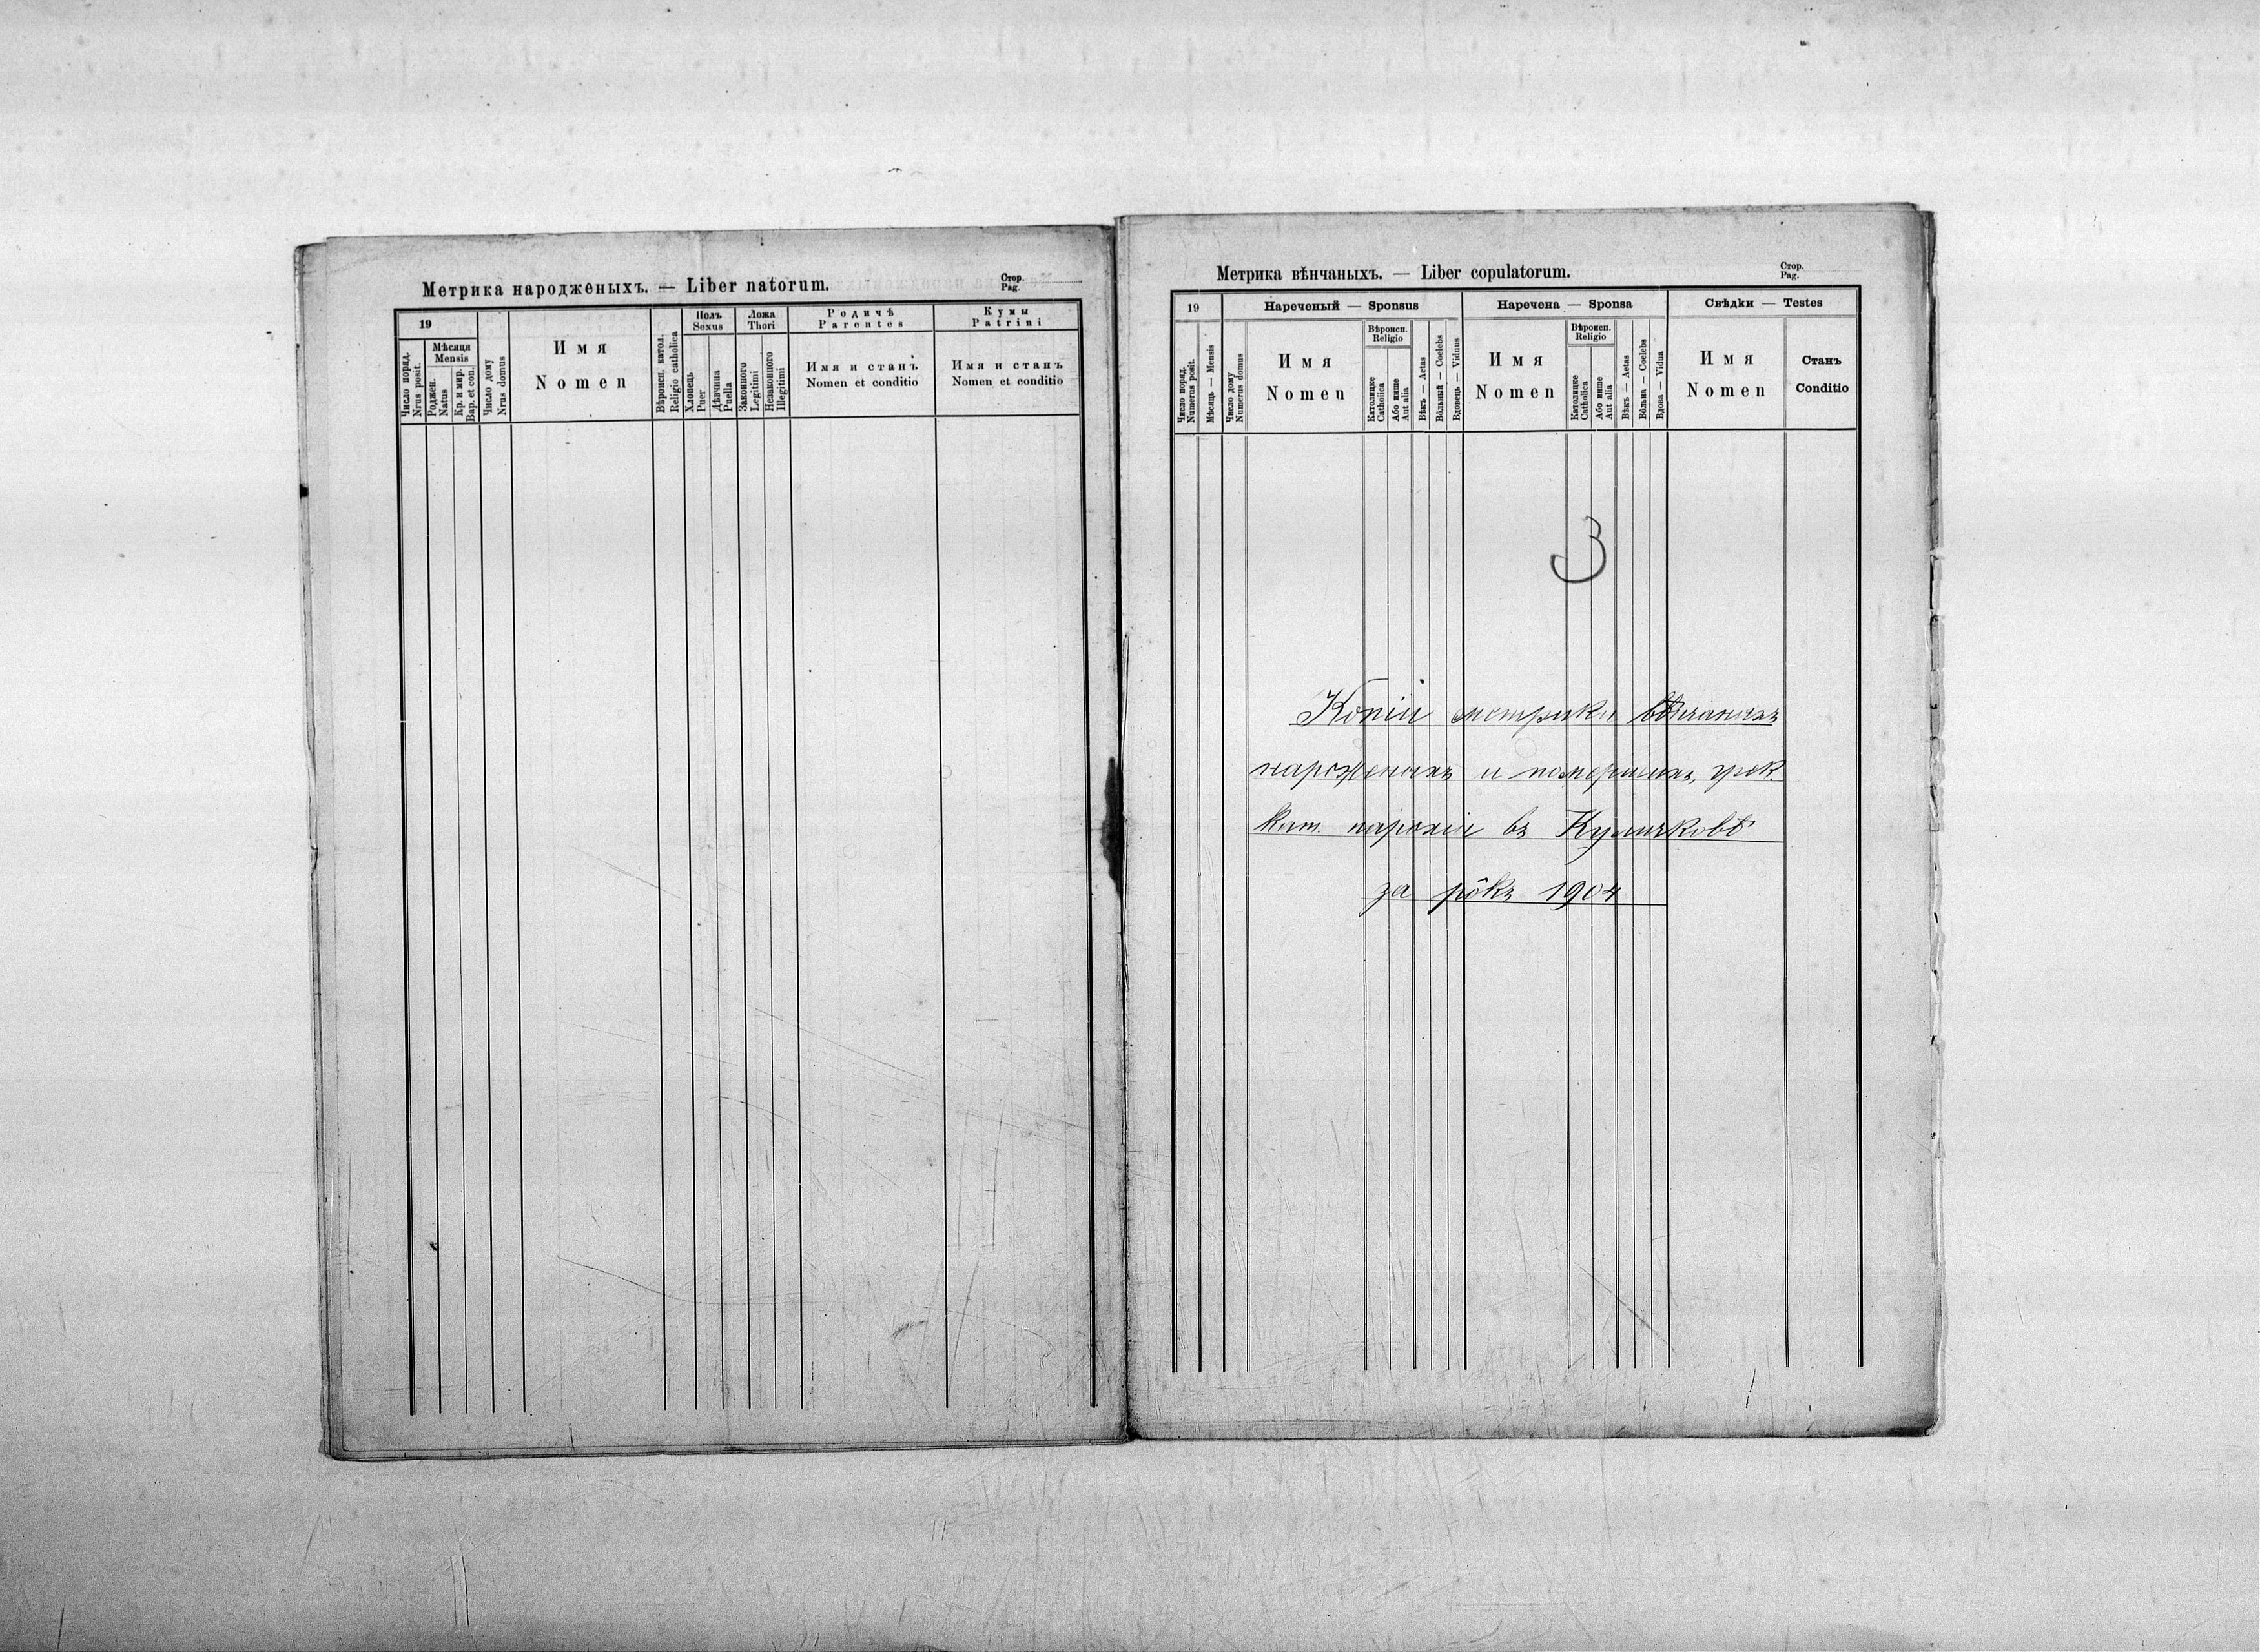 Метрика народженыхъ. — Liber natorum.
Стор.
Pag.
19
Число поряд.
Nrus posit.
Мѣсяця
Mensis
Роджен.
Natus
Кр. и мир.
Bap. et con.
Число дому
Nrus domus
Имя
Nomen
Вѣроисп. катол.
Religio catholica
Полъ
Sexus
Хлопець
Puer
Дѣвчина
Puella
Ложа
Thori
Законного
Legitimi
Незаконного
Illegitimi
Родичѣ
Parentes
Имя и станъ
Nomen et conditio
Кумы
Patrini
Имя и станъ
Nomen et conditio
Метрика вѣнчаныхъ. — Liber copulatorum.
Стор.
Pag.
19
Число поряд.
Numerus posit.
Мѣсяць — Mensis
Число дому
Numerus domus
Нареченый — Sponsus
Имя
Nomen
Вѣроисп.
Religio
Католицке
Catholica
Або инше
Aut alia
Вѣкъ — Aetas
Вôльный — Coelebs
Вдовець — Viduus
Наречена — Sponsa
Имя
Nomen
Вѣроисп.
Religio
Католицке
Catholica
Або инше
Aut alia
Вѣкъ — Aetas
Вôльна — Coelebs
Вдова — Vidua
Свѣдки — Testes
Имя
Nomen
Станъ
Conditio
3
Копіи метрики вѣнчаныхъ
нарожденыхъ и помершихъ, грек.
кат. парохіи въ Куличковѣ
за рôкъ 1904